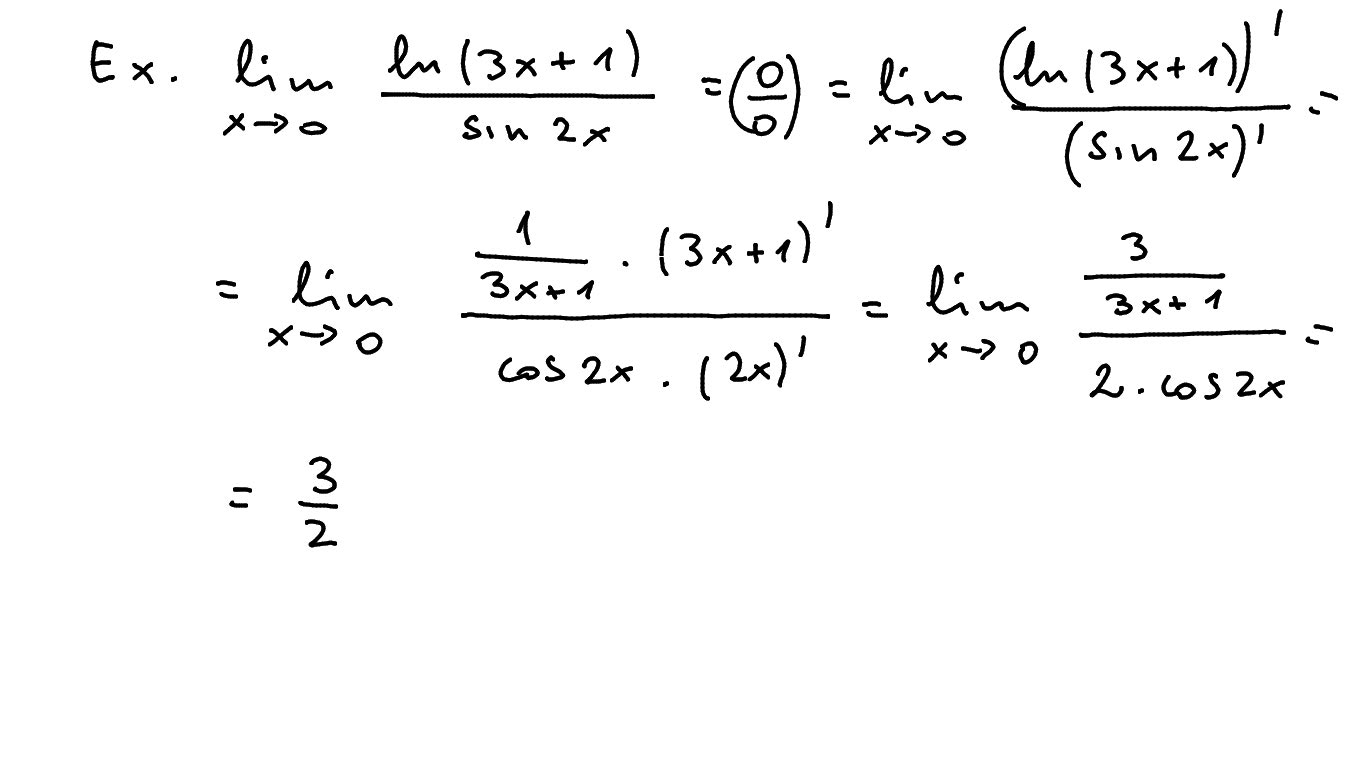 Ex. lim_{x→0} \frac{ln(3x+1)}{sin 2x} = (\frac{0}{0}) = lim_{x→0} \frac{(ln(3x+1))'}{(sin 2x)'} =
= lim_{x→0} \frac{\frac{1}{3x+1} · (3x+1)'}{cos 2x · (2x)'} = lim_{x→0} \frac{\frac{3}{3x+1}}{2 · cos 2x} =
= \frac{3}{2}